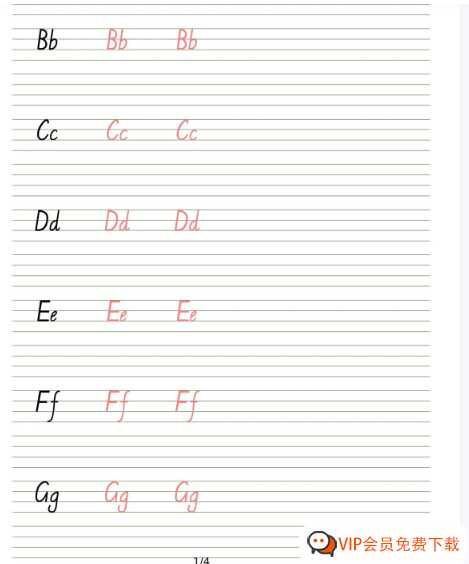 Bb Bb Bb
Cc Cc Cc
Dd Dd Dd
Ee Ee Ee
Ff Ff Ff
Gg Gg Gg
VIP会员免费下载
1/4